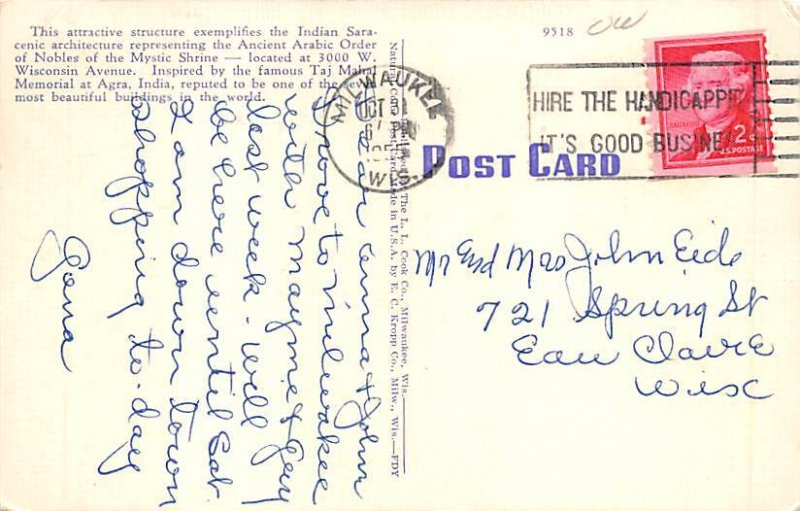 This attractive structure exemplifies the Indian Sara-
cenic architecture representing the Ancient Arabic Order
of Nobles of the Mystic Shrine — located at 3000 W.
Wisconsin Avenue. Inspired by the famous Taj Mahal
Memorial at Agra, India, reputed to be one of the few
most beautiful buildings in the world.
9518
MILWAUKEE
OCT
WIS.
HIRE THE HANDICAPPED
IT'S GOOD BUSINE
2¢
U.S. POSTAGE
POST CARD
The L. L. Cook Co., Milwaukee, Wis.
Made in U.S.A. by E. C. Kropp Co., Milw., Wis.—FDY
Dear Anna & John
Drove to Milwakee
with Mayme & Guy
last week. Will
be here until Sat
I am down town
shopping to-day
Gena
Mr End Mrs John Eide
721 Spring St
Eau Claire
Wisc